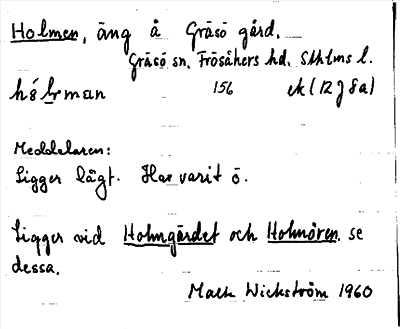 Holmen, äng å Gräsö gård.
Gräsö sn. Frösåkers hd. Sthlms l.
156 ek (12 J 8a)
Meddelaren:
Ligger lågt. Har varit ö.
Ligger vid Holmgärdet och Holmören. se
dessa.
Mats Wickström 1960